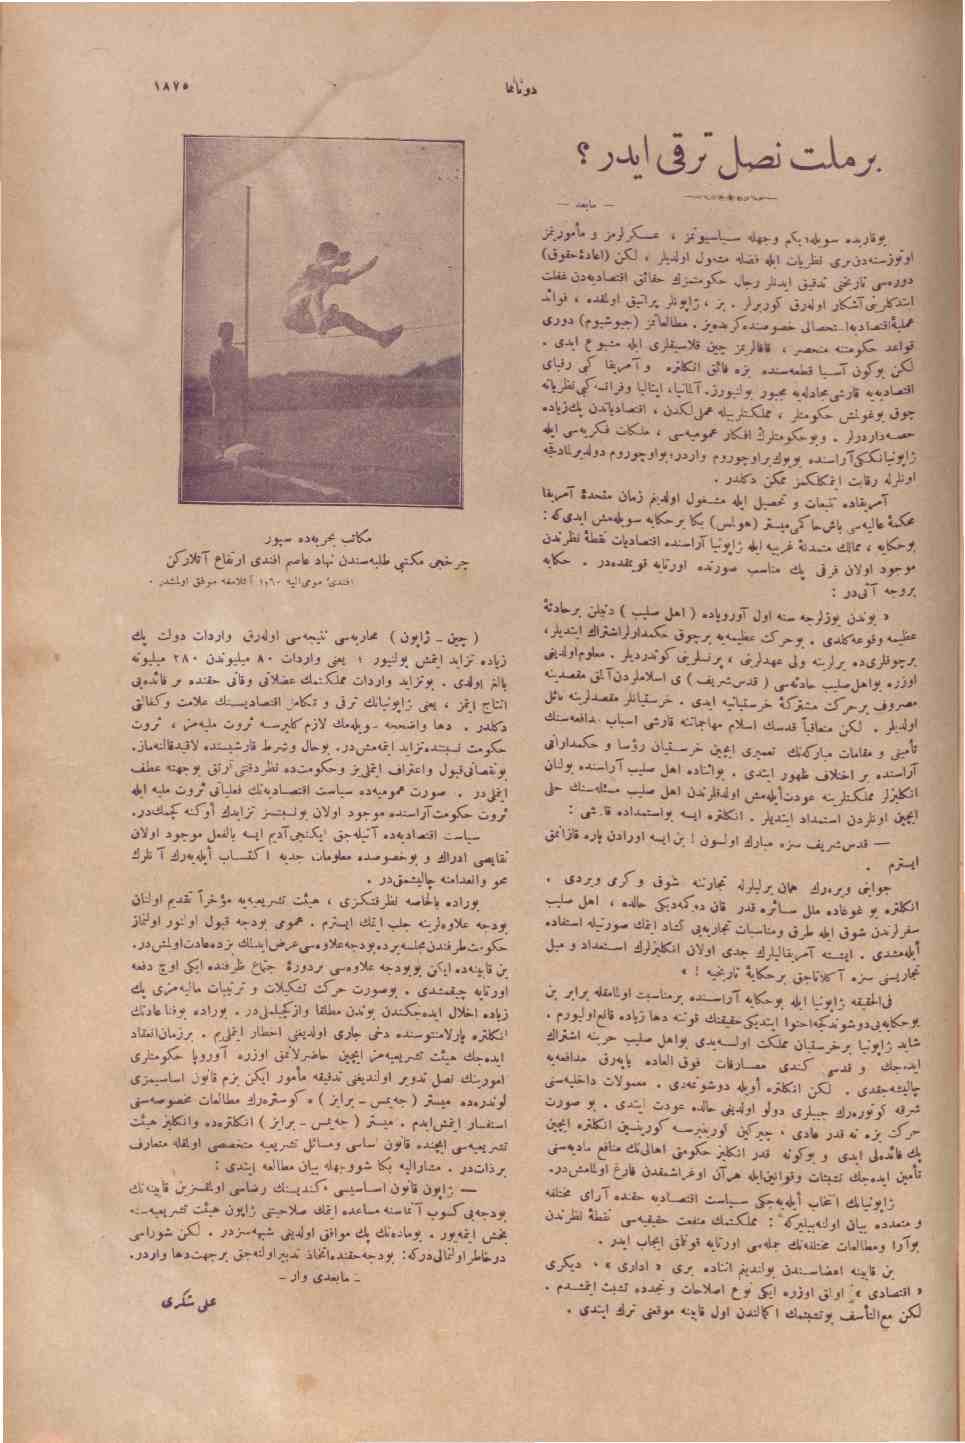 دوننما
١٨٧٥
بر ملت نصل ترقى ايدر ؟
— مابعد —
يوقاريده سويلديكم وجهله سياسيونمز ، عسكرلرمز و مأمورينمز
اوتوز سنه‌دن برى نظريات ايله فضله مشغول اولديلر ، لكن (اعادهٔ حقوق)
دوره‌سى تاريخنى تدقيق ايدنلر رجال حكومتمزك حقائق اقتصاديه‌دن غفلت
ايتدكلرينى آشكار اوله‌رق كوررلر . بز ، ژاپونلر پراتيق اولمقده ، فوائد
عمليهٔ اقتصاديه استحصالى خصوصنده كريده‌يز . مطالعاتمز (جيوشيوم) دورى
قواعد حكومتنه منحصر ، قافالريمز چين قلاسيقلرى ايله مشبوع ايدى .
لكن بوكون آسيا قطعه‌سنده بزه فائق انكلتره و آمريقا كبى رقباى
اقتصاديه‌يه قارشى مجادله‌يه مجبور بولنيورز. آلمانيا، ايتاليا وفرانسه كبى نظرياته
چوق بوغولمش حكومتلر ، مملكتلريله عملى لكدن ، اقتصادياتدن پك زياده
حصه‌داردرلر . وبو حكومتلرك افكار عموميه‌سى ، ملكات فكريه‌سى ايله
ژاپونيانككى آراسنده بويوك براوچوروم واردر؛ بو اوچوروم دولديرلمادقجه
اونلرله رقابت ايتمكلكمز ممكن دكلدر .
آمريقاده تتبعات و تحصيل ايله مشغول اولديغم زمان متحدهٔ آمريقا
محكمهٔ عاليه‌سى باش حاكمى ميستر (هولمس) بكا بر حكايه سويله‌مش ايدى كه :
بو حكايه ، ممالك متمدنهٔ غربيه ايله ژاپونيا آراسنده اقتصاديات نقطهٔ نظرندن
موجود اولان فرقى پك مناسب صورتده اورتايه قويمقده‌در . حكايه
بروجه آتى‌در :
« بوندن يوزلرجه سنه اول آوروپاده ( اهل صليب ) دنيلن بر حادثهٔ
عظيمه وقوعه كلدى . بو حركت عظيمه‌يه برچوق حكمدارلر اشتراك ايتديلر،
برچوقلرى‌ده برلرينه ولى عهدلرينى ، پرنسلرينى كوندرديلر . معلوم اولديغى
اوزره بو اهل صليب حادثه‌سى ( قدس شريف ) ى اسلاملردن آلمق مقصدينه
مصروف بر حركت مشتركهٔ خرستيانيه ايدى . خرستيانلر مقصدلرينه نائل
اولديلر . لكن متعاقباً قدسك اسلام مهاجماتنه قارشى اسباب مدافعه‌سنك
تأمينى و مقامات مباركه‌نك تعميرى ايچين خرستيان رؤسا و حكمدارانى
آراسنده بر اختلاف ظهور ايتدى . بو اثناده اهل صليب آراسنده بولنان
انكليزلر مملكتلرينه عودت ايله‌مش اولدقلرندن اهل صليب مسئله‌سنك حلى
ايچين اونلردن استمداد ايتديلر . انكلتره ايسه بو استمداده قارشى :
— قدس شريف سزه مبارك اولسون ! بن ايسه اورادن پاره قازانمق
ايسترم .
جوابنى ويره‌رك همان برليلرله تجارتنه شوق و كرمى ويردى .
انكلتره بو غوغاده ملل سائره قدر قان دوكمه‌ديكى حالده ، اهل صليب
سفرلرندن شوق ايله طرق ومناسبات تجاريه‌يى كشاد ايتمك صورتيله استفاده
ايله‌مشدى . ايشته آمريقاليلرك جدى اولان انكليزلرك استعداد و ميل
تجاريسنى سزه آكلاتاجق بر حكايهٔ تاريخيه ! »
فى الحقيقه ژاپونيا ايله بو حكايه آراسنده بر مناسبت اولمامقله برابر بن
بو حكايه‌يى دوشوندكجه احتوا ايتديكى حقيقتك قوتنه دها زياده قانع اوليورم .
شايد ژاپونيا بر خرستيان مملكت اولسه‌يدى بو اهل صليب حربنه اشتراك
ايده‌جك و قدسى كندى مصارفات فوق العاده ياپه‌رق مدافعه‌يه
چاليشه‌جقدى . لكن انكلتره اويله دوشونمدى . معمولات داخليه‌سنى
شرقه كوتوره‌رك جيبلرى دولو اولديغى حالده عودت ايتدى . بو صورت
حركت بزه نه قدر عادى ، چيركين كورينيرسه كورينسين انكلتره ايچين
پك فائده‌لى ايدى و بوكونه قدر انكليز حكومتى اهالى‌نك منافع ماديه‌سنى
تأمين ايده‌جك تشبثات وقوانين ايله هر آن اوغراشمقدن فارغ اولمامش‌در.
ژاپونيانك انتخاب ايله‌يه‌جكى سياست اقتصاديه حقنده آراى مختلفه
و متعدده بيان اولنه‌بيليركه : مملكتك منفعت حقيقيه‌سى نقطهٔ نظرندن
بو آرا ومطالعات مختلفه‌نك جمله‌سى اورتايه قونلمق ايجاب ايدر .
بن قابينه اعضاسندن بولنديغم اثناده برى « ادارى » ، ديكرى
« اقتصادى » اولمق اوزره ايكى نوع اصلاحات و تجدده تشبث ايتمشدم .
لكن مع التأسف بو تشبثمك اكمالندن اول قابينه موقعنى ترك ايتدى .
مكاتب بحريه‌ده سپور
چرخجى مكتبى طلبه‌سندن نهاد عاصم افندى ارتفاع آتلاركن
افندئ مومى اليه ١،٦٠ آتلامغه موفق اولمشدر .
( چين - ژاپون ) محاربه‌سى نتيجه‌سى اوله‌رق واردات دولت پك
زياده تزايد ايتمش بولنيور ؛ يعنى واردات ٨٠ مليوندن ٢٨٠ مليونه
بالغ اولدى . بو تزايد واردات مملكتمك عضلاتى وقانى حقنده بر فائده‌يى
انتاج ايتمز ، يعنى ژاپونيانك ترقى و تكامل اقتصاديسنك علامت وكفالتى
دكلدر . دها واضحجه سويله‌مك لازم كليرسه ثروت مليه‌مز ، ثروت
حكومت نسبتنده تزايد ايتمه‌مش‌در. بو حال وشرط قارشيسنده لاقيد قالنه‌ماز.
بو نقصانى قبول واعتراف ايتملى‌يز وحكومت‌ده نظر دقتنى آرتق بو جهته عطف
ايتملى‌در . صورت عموميه‌ده سياست اقتصاديه‌نك فعلياتى ثروت مليه ايله
ثروت حكومت آراسنده موجود اولان بو نسبتسز تزايدك اوكنه كچمك‌در.
سياست اقتصاديه‌ده آتيله‌جق ايكنجى آديم ايسه بالفعل موجود اولان
نقايصى ادراك و بو خصوصده معلومات جديه اكتساب ايله‌يه‌رك آنلرك
محو وانعدامنه چاليشمق‌در .
بوراده بالخاصه نظر دقتكزى ، هيئت تشريعيه‌يه مؤخراً تقديم اولنان
بودجه علاوه‌لرينه جلب ايتمك ايسترم . عمومى بودجه قبول اولنور اولنماز
حكومت طرفندن مجلسه برده بودجه علاوه‌سى عرض ايديلمك بزده عادت اولمش‌در.
بن قابينه‌ده ايكن بو بودجه علاوه‌سى بر دورهٔ اجتماع ظرفنده ايكى اوچ دفعه
اورتايه چيقمشدى . بو صورت حركت تشكيلات و ترتيبات ماليه‌مزى پك
زياده اخلال ايده‌جكندن بوندن مطلقا واز كچيلملى‌در . بوراده بو فنا عادتك
انكلتره پارلامنتوسنده دخى جارى اولديغنى اخطار ايتملى‌يم . بر زمان انعقاد
ايده‌جك هيئت تشريعيه‌مز ايچين حاضرلانمق اوزره آوروپا حكومتلرى
امورينك نصل تدوير اولنديغنى تدقيقه مأمور ايكن بزم قانون اساسيمزى
لوندره‌ده ميستر ( جه‌يمس - برايز ) ه كوستره‌رك مطالعات مخصوصه‌سنى
استفسار ايتمش ايدم . ميستر ( جه‌يمس - برايز ) انكلتره‌ده وانكليز هيئت
تشريعيه‌سى ايچنده قانون اساسى ومسائل تشريعيه متخصصى اولمقله متعارف
بر ذات‌در . مشاراليه بكا شو وجهله بيان مطالعه ايتدى :
— ژاپون قانون اساسيسى ، كنديسنك رضاسى اولمقسزين قابينه‌نك
بودجه‌يى كسوب آتماسنه مساعده ايتمك صلاحيتنى ژاپون هيئت تشريعيه‌سنه
بخش ايتمه‌يور . بو ماده‌نك پك موافق اولديغى شبهه‌سزدر . لكن شوراسى
درخاطر اولنمالى‌دركه : بودجه حقنده اتخاذ تدبير اولنه‌جق بر جهت دها واردر.
- مابعدى وار -
على شكرى